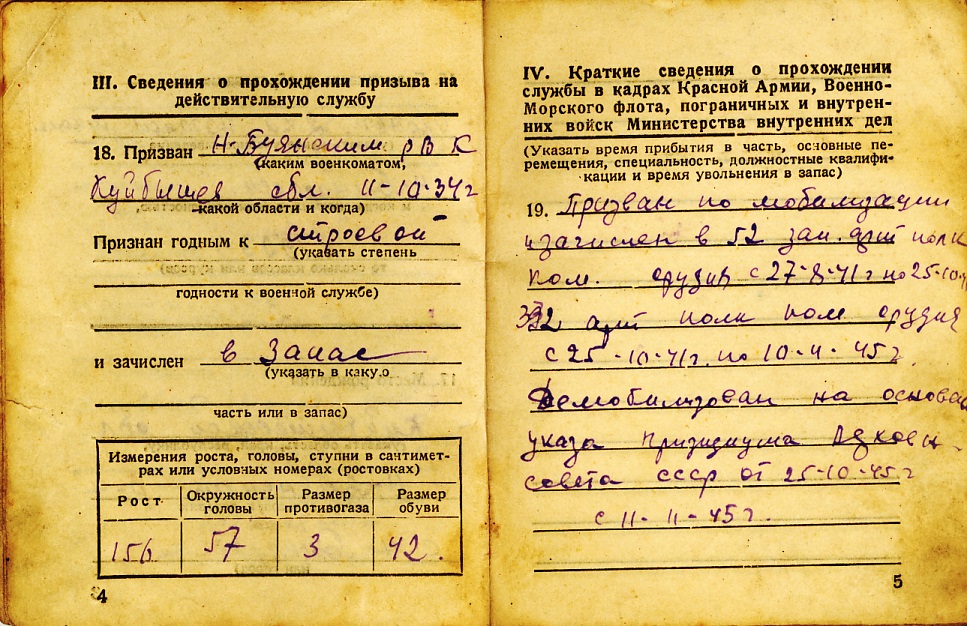 III. Сведения о прохождении призыва на
действительную службу
18. Призван Н-Буянским РВК
(каким военкоматом,
Куйбышев обл. 11-10-34г
какой области и когда)
Признан годным к строевой
(указать степень
годности к военной службе)
и зачислен в запас
(указать в какую
часть или в запас)
Измерения роста, головы, ступни в сантимет-
рах или условных номерах (ростовках)
Рост Окружность головы Размер противогаза Размер обуви
156 57 3 42.
4
IV. Краткие сведения о прохождении
службы в кадрах Красной Армии, Военно-
Морского флота, пограничных и внутрен-
них войск Министерства внутренних дел
(Указать время прибытия в часть, основные пе-
ремещения, специальность, должностные квалифи-
кации и время увольнения в запас)
19. Призван по мобилизации
и зачислен в 52 зап. арт полк
ком. орудия с 27-8-41г по 25-10-
332 арт полк ком орудия
с 25-10-41г. по 10-11-45г.
Демобилизован на основа
указа Призидиума Верховн-
совета СССР от 25-10-45г
с 11-11-45г.
5